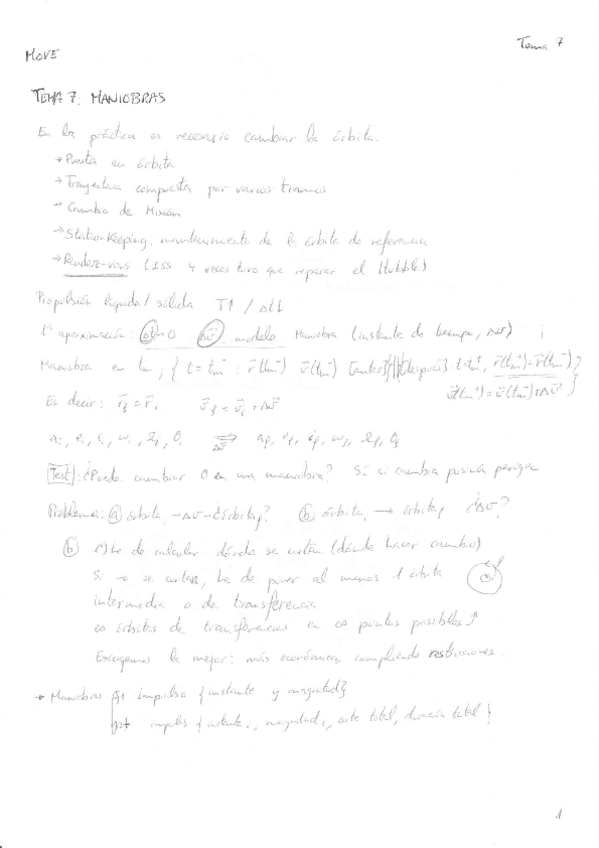 Tema 7
MOVE
TEMA 7: MANIOBRAS
En la práctica es necesario cambiar la órbita.
→ Puesta en órbita
→ Trayectoria compuesta por varios tramos
→ Cambio de Misión
→ StationKeeping: mantenimiento de la órbita de referencia
→ Rendez-vous (ISS 4 veces tuvo que reparar el Hubble)
Propulsión líquida / sólida T↑ / Δt↓
1ª aproximación: Δt=0 Δv modelo Maniobra (instante de tiempo, Δv) ;
Maniobra en tm ; { t = tm⁻ : r(tm⁻) v(tm⁻) [antes] [después] t=tm⁺, r(tm⁺)=r(tm⁻)
v(tm⁺)=v(tm⁻)+Δv }
Es decir: rf = ri vf = vi + Δv
ai, ei, ii, ωi, Ωi, θi ⟹ af, ef, if, ωf, Ωf, θf
Δv
Test: ¿Puede cambiar θ en una maniobra? Sí si cambia posición perigeo
Problema: ⓐ órbita, → Δv → ¿órbitaf? ⓑ órbita, → órbitaf ¿Δv?
ⓑ 1º) He de calcular dónde se cortan (dónde hacer cambio)
Si no se cortan, he de poner al menos 1 órbita
intermedia o de transferencia
∞ órbitas de transferencias en ∞ puntos posibles
Escogemos la mejor: más económica, cumpliendo restricciones...
→ Maniobras 1 impulso {instante y magnitud}
2+ impulsos {instante, magnitud, coste total, duración total}
1